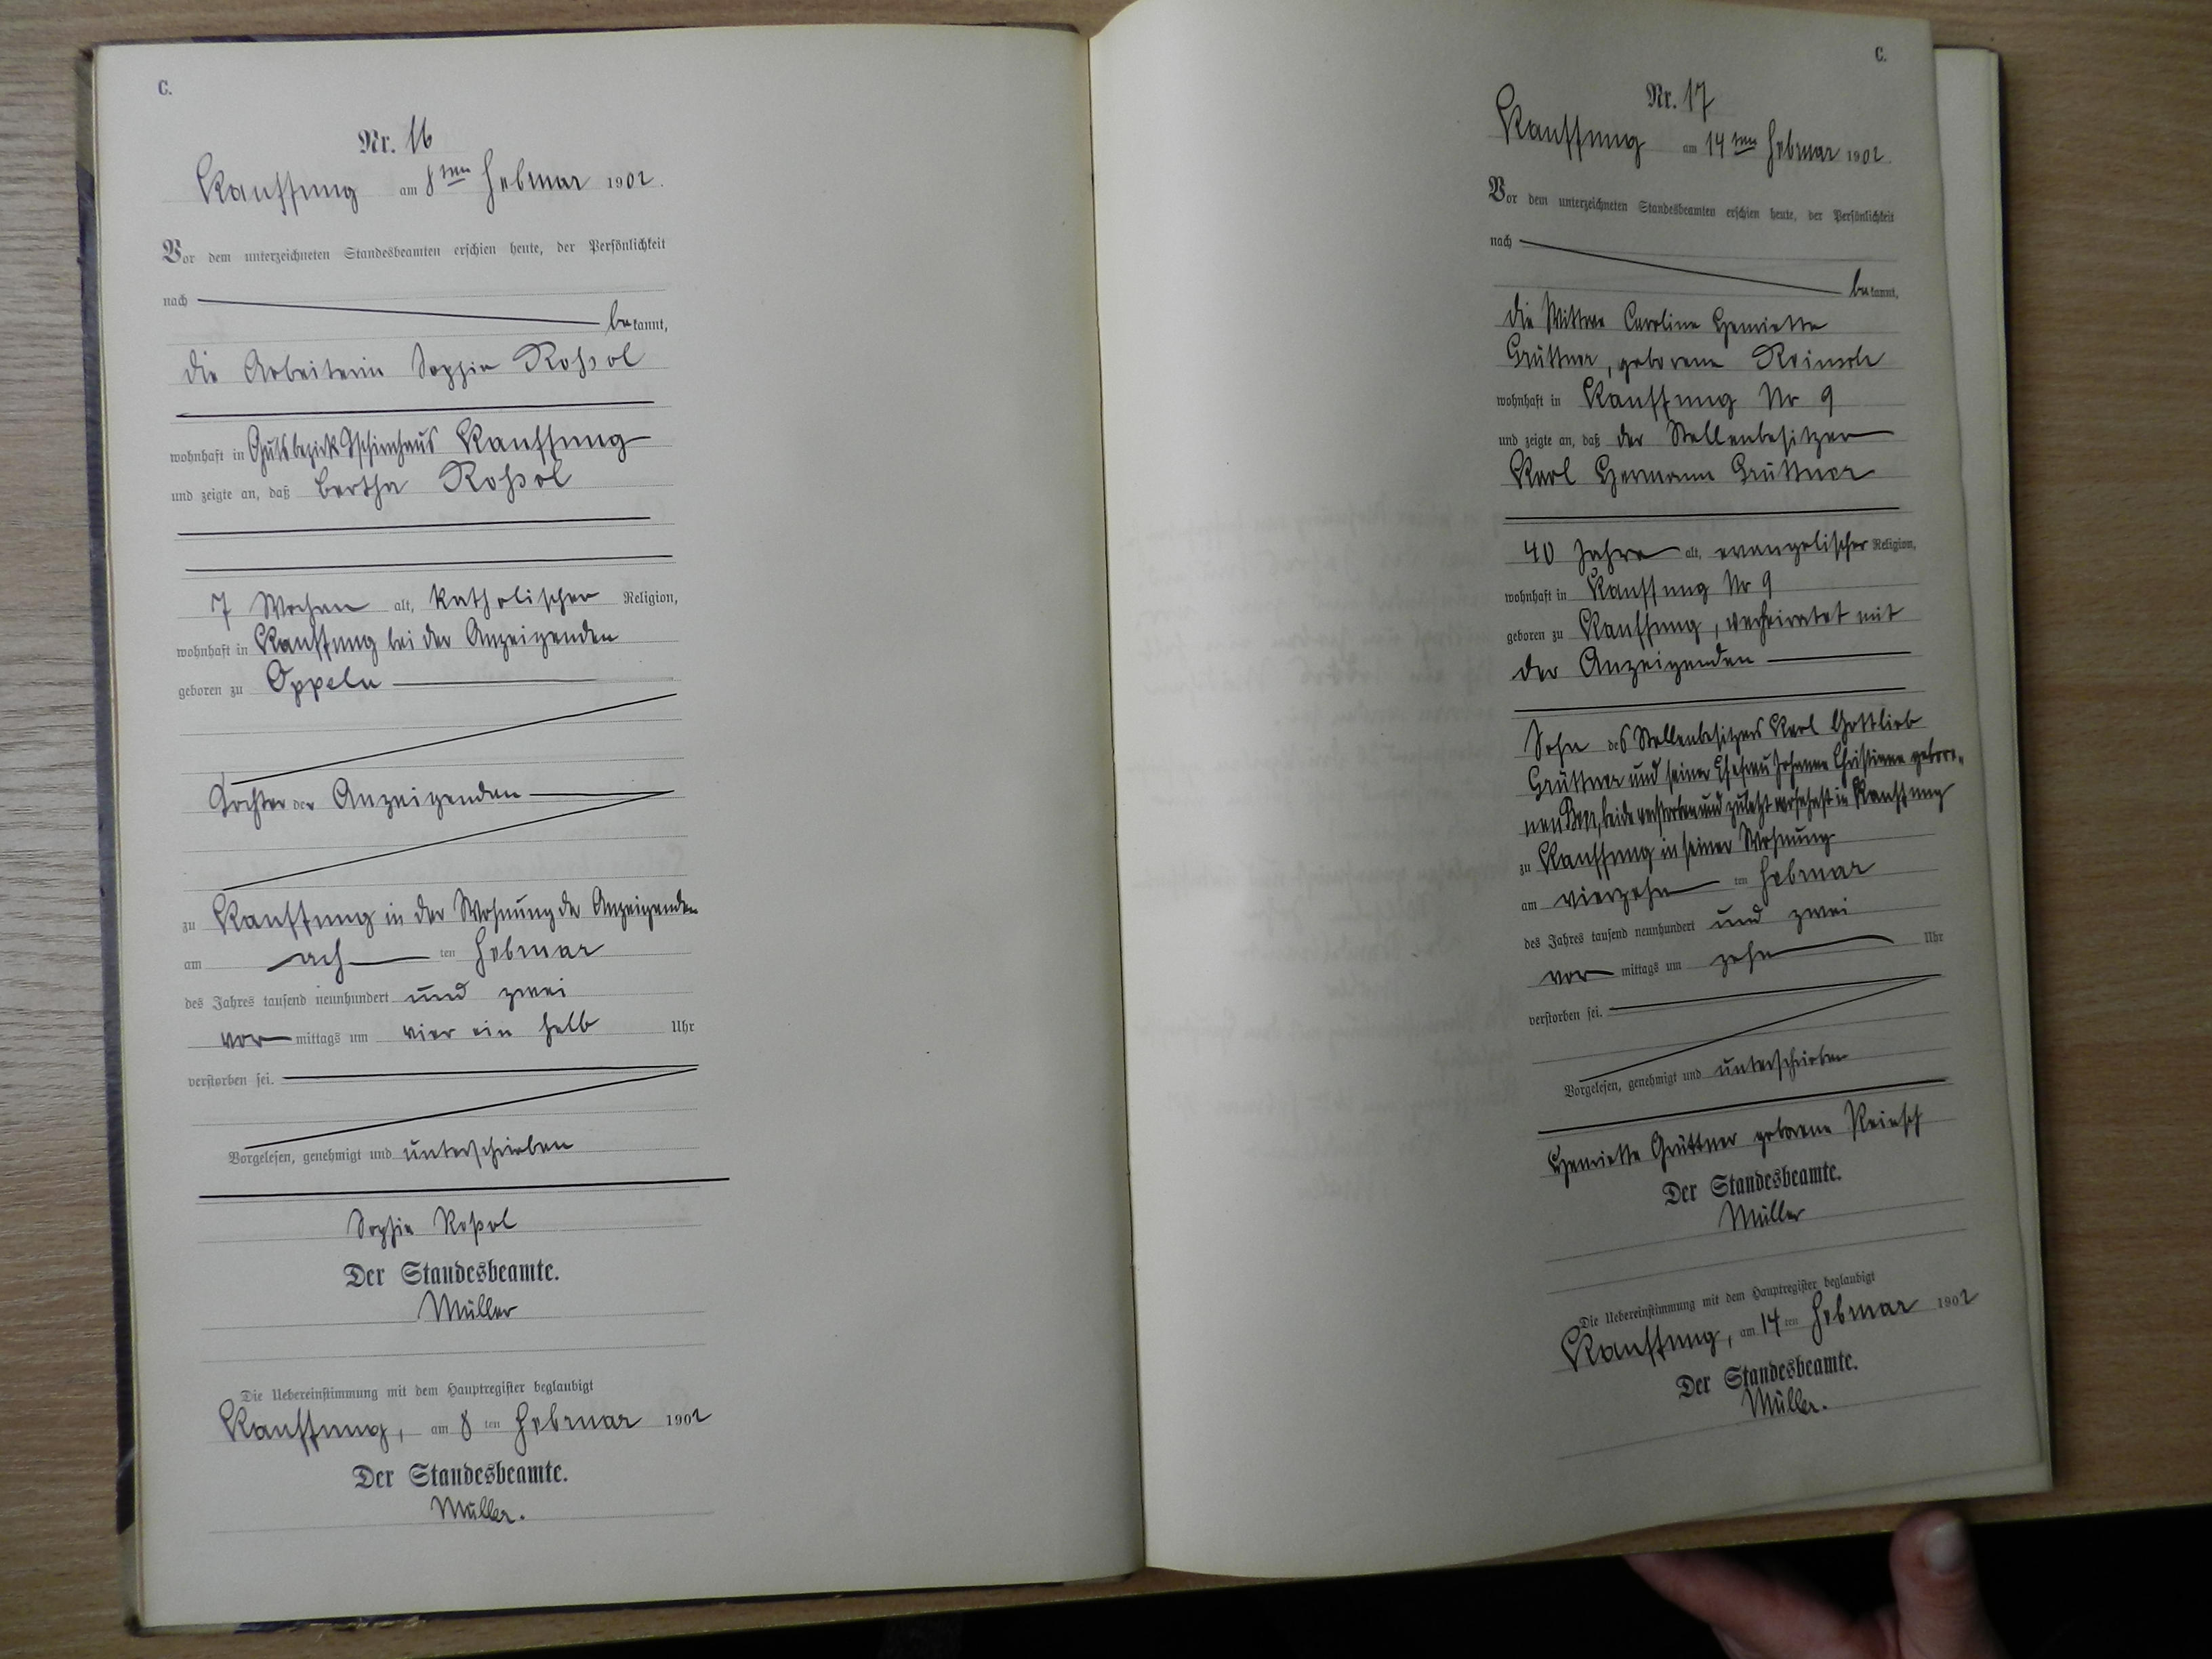 C.
Nr. 16
Kauffung am 8ten Februar 1902.
Vor dem unterzeichneten Standesbeamten erschien heute, der Persönlichkeit
nach
bekannt,
die Arbeiterin Sophie Roßol
wohnhaft in Gutsbezirk Kauffung
und zeigte an, daß Bertha Roßol
7 Wochen alt, katholischer Religion,
wohnhaft in Kauffung bei der Anzeigenden
geboren zu Oppeln
Tochter der Anzeigenden
zu Kauffung in der Wohnung der Anzeigenden
am ach ten Februar
des Jahres tausend neunhundert und zwei
vor mittags um vier ein halb Uhr
verstorben sei.
Vorgelesen, genehmigt und unterschrieben
Sophie Roßol
Der Standesbeamte.
Müller
Die Uebereinstimmung mit dem Hauptregister beglaubigt
Kauffung, am 8 ten Februar 1902
Der Standesbeamte.
Müller.
C.
Nr. 17
Kauffung am 14ten Februar 1902.
Vor dem unterzeichneten Standesbeamten erschien heute, der Persönlichkeit
nach
bekannt,
die Wittwe Caroline Henriette
Grüttner, geborene Reinsch
wohnhaft in Kauffung Nr 9
und zeigte an, daß der Stellenbesitzer
Karl Hermann Grüttner
40 Jahre alt, evangelischer Religion,
wohnhaft in Kauffung Nr 9
geboren zu Kauffung, verheiratet mit
der Anzeigenden
Sohn des Stellenbesitzers Karl Gottlieb
Grüttner und seiner Ehefrau Johanne Christiane gebore-
nen beide verstorben und zuletzt wohnhaft in Kauffung
zu Kauffung in seiner Wohnung
am vierzehn ten Februar
des Jahres tausend neunhundert und zwei
vor mittags um zehn Uhr
verstorben sei.
Vorgelesen, genehmigt und unterschrieben
Henriette Grüttner geborene Reinsch
Der Standesbeamte.
Müller
Die Uebereinstimmung mit dem Hauptregister beglaubigt
Kauffung, am 14 ten Februar 1902
Der Standesbeamte.
Müller.